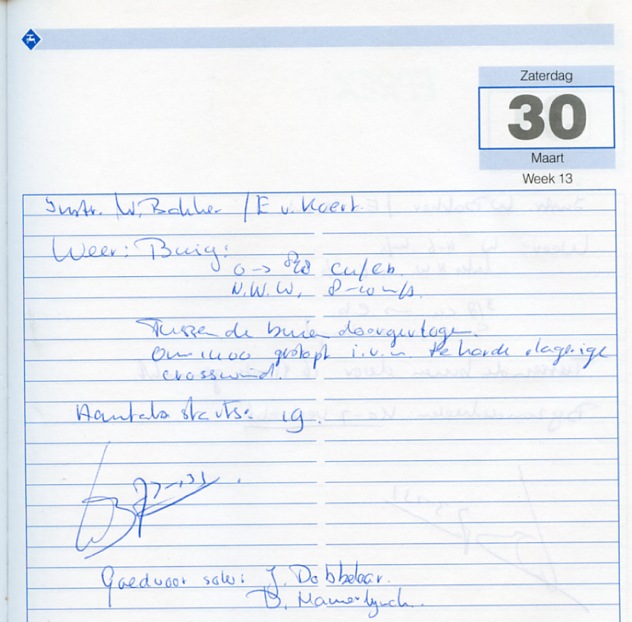 Zaterdag
30
Maart
Week 13
Instr. W. Bakker / E v. Koert.
Weer: Buig:
0 -> 8/8 cu/cb.
N.W.W, 8-10 m/s.
Tussen de buien doorgevlogen.
Om 1100 gestopt i.v.m. te harde vlagerige
crosswind.
Aantal starts: 19.
Goedvoor solo: J. Dobbelaar.
B.